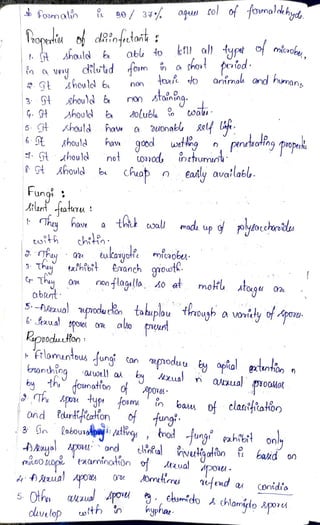 * Formalin is 30/37% aques sol of formaldehyde.
Properties of disinfectants :
1. It should be able to kill all types of microbes,
in a very diluted form in a short period.
2 It should be non toxic to animals and humans
3. It should be non staining.
4. It should be soluble in water.
5. It should have a resonable self life.
6 It should have good wetting n penetrating propertie
7. It should not corrode instruments
8 It should be cheap n easily available.
Fungi :
Silent features :
1. They have a thick wall made up of polysaccharides
with chitin.
2. They are eukaryotic microbes.
3. They exhibit Branch growth.
4. They are nonflagella. so at motile stages are
absent.
5. Asexual reproduction takeplace through a variety of spores.
6. Sexual spores are also present
Reproduction :
1. Filamentous fungi can reproduce by apical extention n
branching aswell as by sexual n asexual process
by the formation of spores.
2. The spore type forms in bases of classification
and identification of fungi.
3. In settings, most fungi exhibit only
Asexual spores and clinical investigation is based on
microscopic examination of sexual spores.
4. Asexual spores are sometimes referred as conidia
5. Other asexual spores eg. chlamido & chlamydo spores
develop with in hyphae.